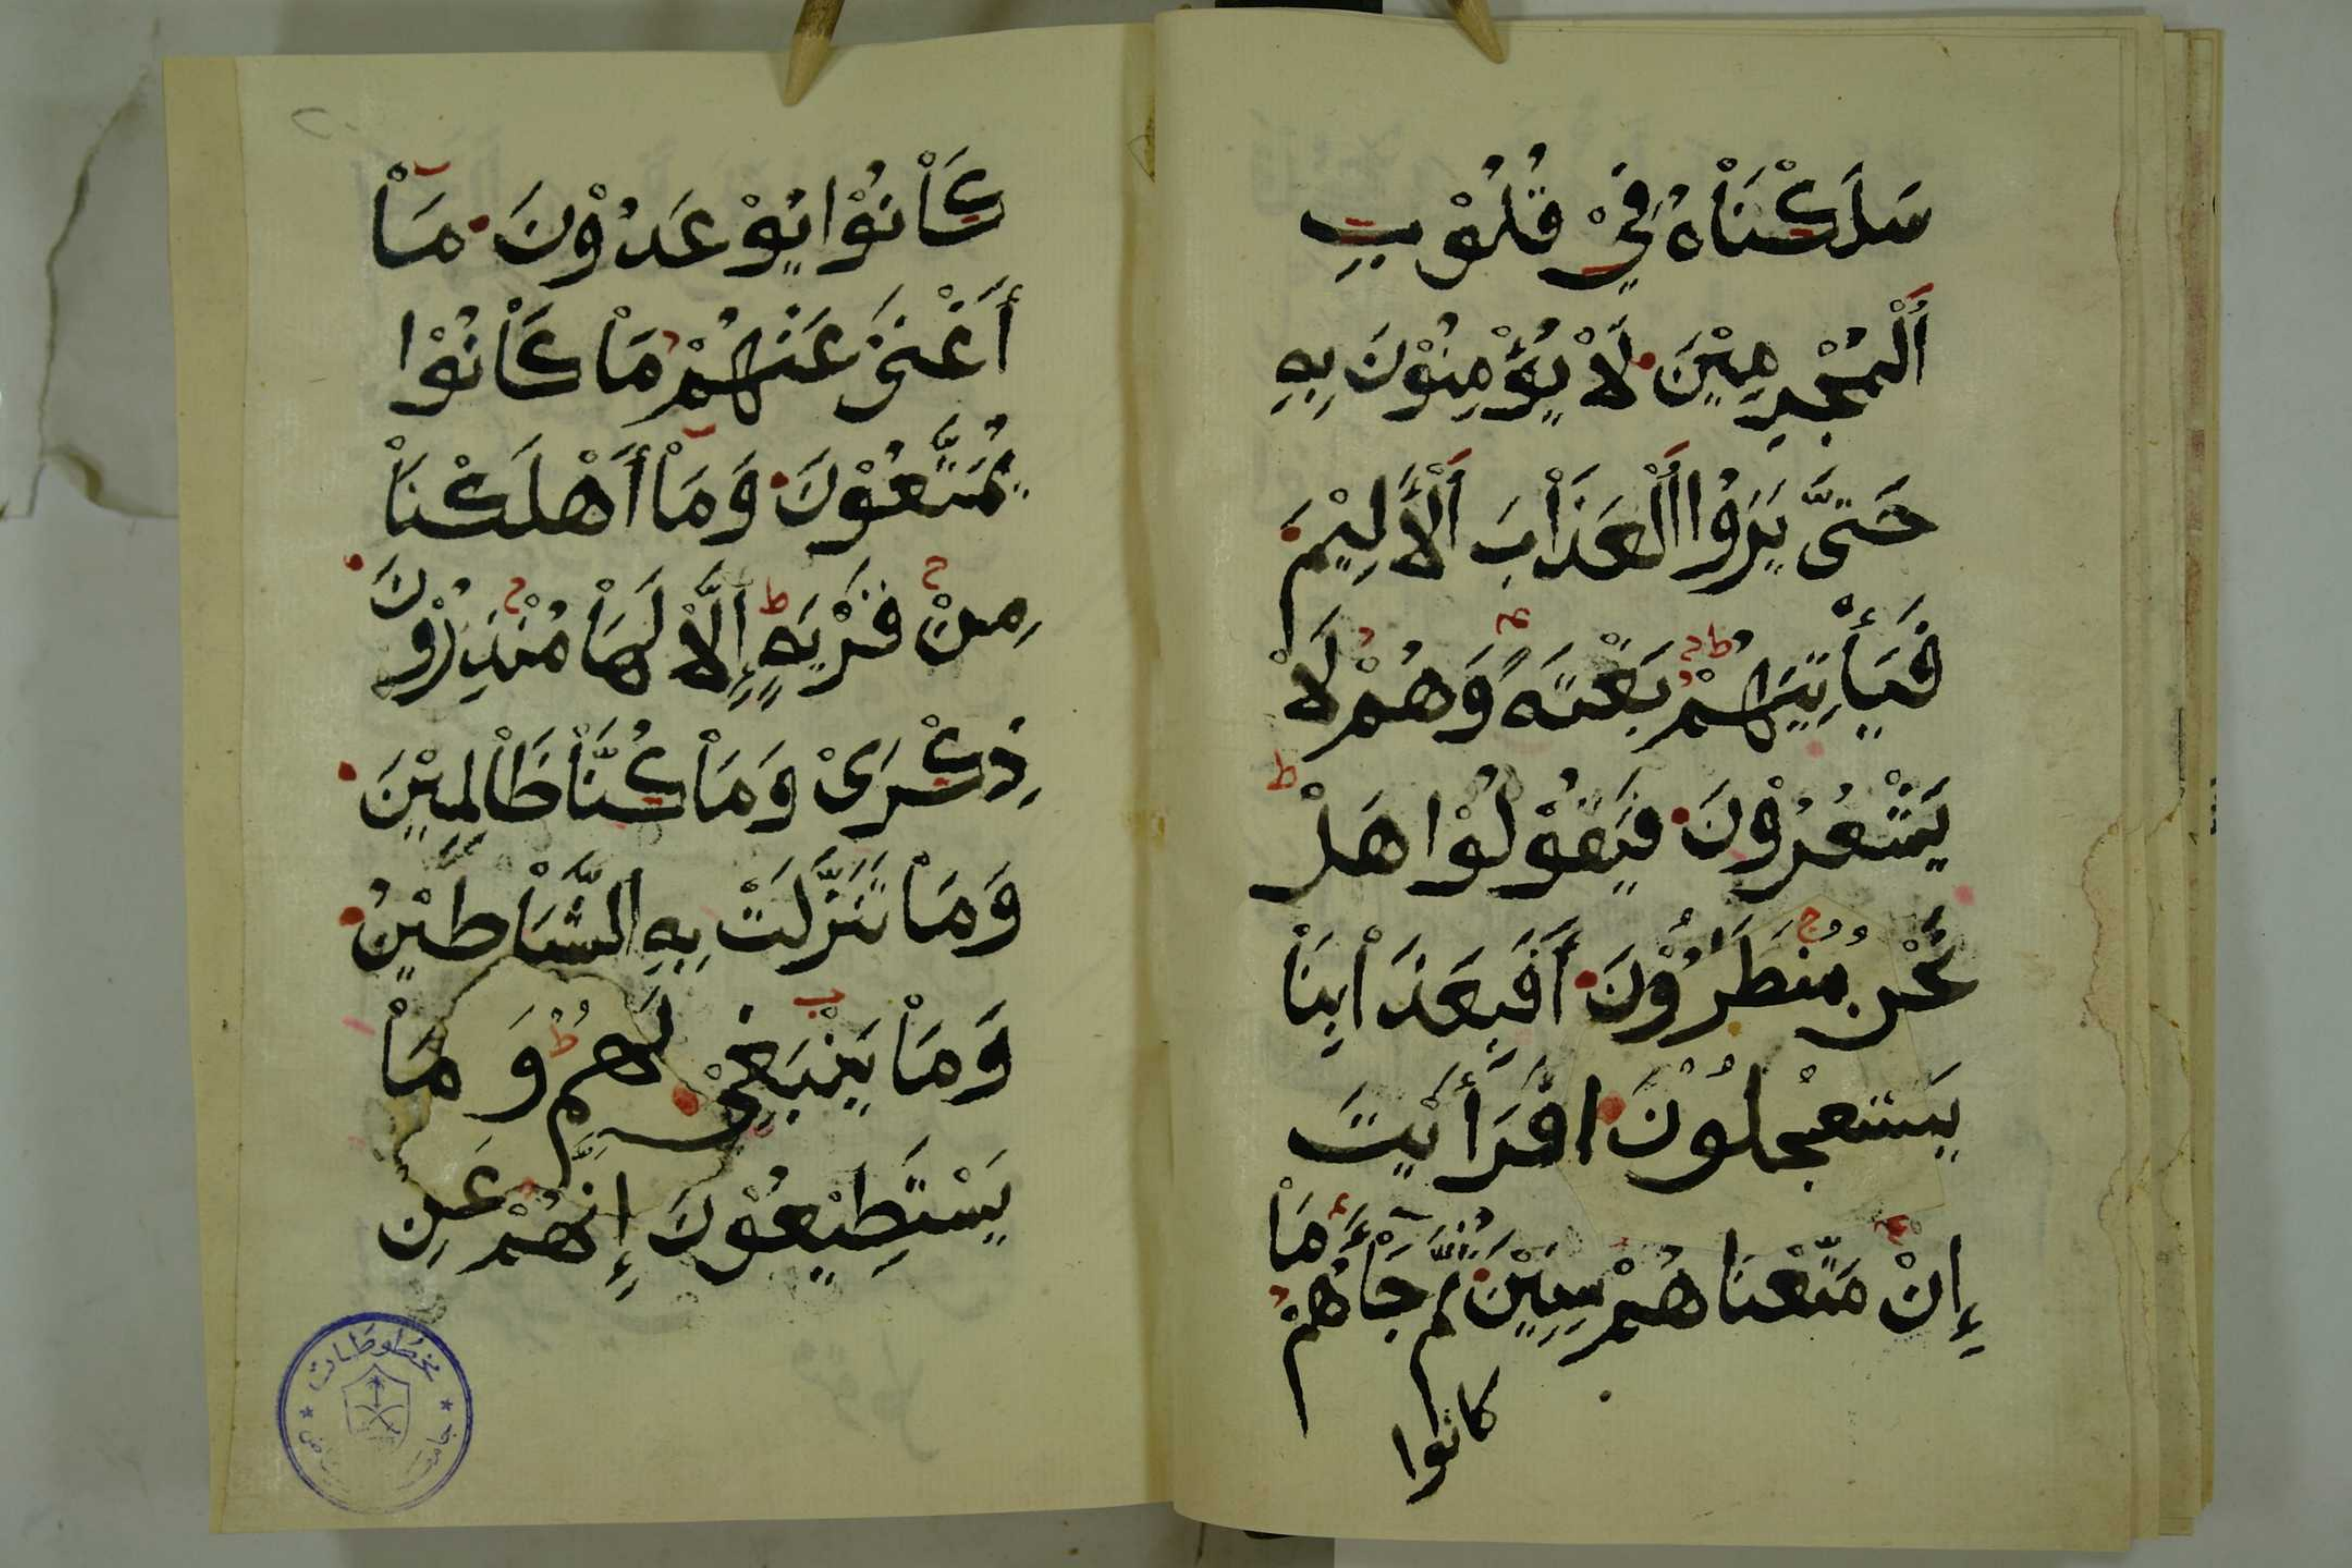 سَلَكْنَاْهُ فِيْ قُلُوْبِ
اَلْمُجْرِمِيْنَ لَاْ يُؤْمِنُوْنَ بِهِ
حَتَّى يَرَوُا اَلْعَذَاْبَ اَلْأَلِيْمَ
فَيَأْتِيَهُمْ بَغْتَةً وَهُمْ لَاْ
يَشْعُرُوْنَ فَيَقُوْلُوْا هَلْ
نَحْنُ مُنْظَرُوْنَ أَفَبِعَذَاْبِنَاْ
يَسْتَعْجِلُوْنَ افَرَأَيْتَ
إِنْ مَتَّعْنَاهُمْ سِنِيْنَ ثُمَّ جَاْءَهُمْ مَاْ
كانوا
كَاْنُوْا يُوْعَدُوْنَ مَاْ
أَغْنَىْ عَنْهُمْ مَاْ كَاْنُوْا
يُمَتَّعُوْنَ وَمَاْ أَهْلَكْنَاْ
مِنْ قَرْيَةٍ إِلَّاْ لَهَاْ مُنْذِرُوْنَ
ذِكْرَىْ وَمَاْ كُنَّاْ ظَاْلِمِيْنَ
وَمَاْ تَنَزَّلَتْ بِهِ الشَّيَاْطِيْنُ
وَمَاْ يَنْبَغِيْ لَهُمْ وَمَاْ
يَسْتَطِيْعُوْنَ إِنَّهُمْ عَنِ
مخطوطات
جامعة